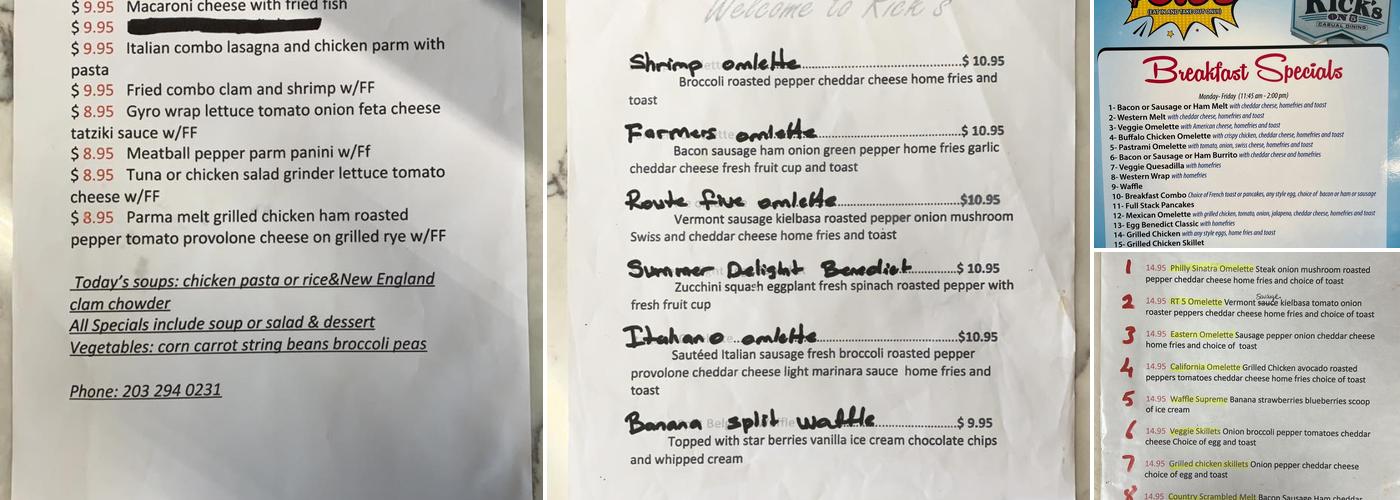 $ 9.95 Macaroni cheese with fried fish
$ 9.95
$ 9.95 Italian combo lasagna and chicken parm with
pasta
$ 9.95 Fried combo clam and shrimp w/FF
$ 8.95 Gyro wrap lettuce tomato onion feta cheese
tatziki sauce w/FF
$ 8.95 Meatball pepper parm panini w/Ff
$ 8.95 Tuna or chicken salad grinder lettuce tomato
cheese w/FF
$ 8.95 Parma melt grilled chicken ham roasted
pepper tomato provolone cheese on grilled rye w/FF
Today's soups: chicken pasta or rice&New England
clam chowder
All Specials include soup or salad & dessert
Vegetables: corn carrot string beans broccoli peas
Phone: 203 294 0231
Welcome to Rick's
Shrimp omlette.......................................$ 10.95
Broccoli roasted pepper cheddar cheese home fries and
toast
Farmers omlette....................................$ 10.95
Bacon sausage ham onion green pepper home fries garlic
cheddar cheese fresh fruit cup and toast
Route five omlette...............................$10.95
Vermont sausage kielbasa roasted pepper onion mushroom
Swiss and cheddar cheese home fries and toast
Summer Delight Benedict............$ 10.95
Zucchini squash eggplant fresh spinach roasted pepper with
fresh fruit cup
Italiano omlette...................................$10.95
Sautéed Italian sausage fresh broccoli roasted pepper
provolone cheddar cheese light marinara sauce home fries and
toast
Banana split waffle.....................$ 9.95
Topped with star berries vanilla ice cream chocolate chips
and whipped cream
(EAT IN AND TAKE OUT ONLY)
RICK'S
ON 5
CASUAL DINING
Breakfast Specials
Monday- Friday (11:45 am - 2:00 pm)
1- Bacon or Sausage or Ham Melt with cheddar cheese, homefries and toast
2- Western Melt with cheddar cheese, homefries and toast
3- Veggie Omelette with American cheese, homefries and toast
4- Buffalo Chicken Omelette with crispy chicken, cheddar cheese, homefries and toast
5- Pastrami Omelette with tomato, onion, swiss cheese, homefries and toast
6- Bacon or Sausage or Ham Burrito with cheddar cheese and homefries
7- Veggie Quesadilla with homefries
8- Western Wrap with homefries
9- Waffle
10- Breakfast Combo Choice of French toast or pancakes, any style egg, choice of bacon or ham or sausage
11- Full Stack Pancakes
12- Mexican Omelette with grilled chicken, tomato, onion, jalapeno, cheddar cheese, homefries and toast
13- Egg Benedict Classic with homefries
14- Grilled Chicken with any style eggs, home fries and toast
15- Grilled Chicken Skillet
1 14.95 Philly Sinatra Omelette Steak onion mushroom roasted
pepper cheddar cheese home fries and choice of toast
2 14.95 RT 5 Omelette Vermont sauce Sausage kielbasa tomato onion
roaster peppers cheddar cheese home fries and choice of toast
3 14.95 Eastern Omelette Sausage pepper onion cheddar cheese
home fries and choice of toast
4 14.95 California Omelette Grilled Chicken avocado roasted
peppers tomatoes cheddar cheese home fries choice of toast
5 14.95 Waffle Supreme Banana strawberries blueberries scoop
of ice cream
6 14.95 Veggie Skillets Onion broccoli pepper tomatoes cheddar
cheese Choice of egg and toast
7 14.95 Grilled chicken skillets Onion pepper cheddar cheese
choice of egg and toast
8 14.95 Country Scrambled Melt Bacon Sausage Ham cheddar